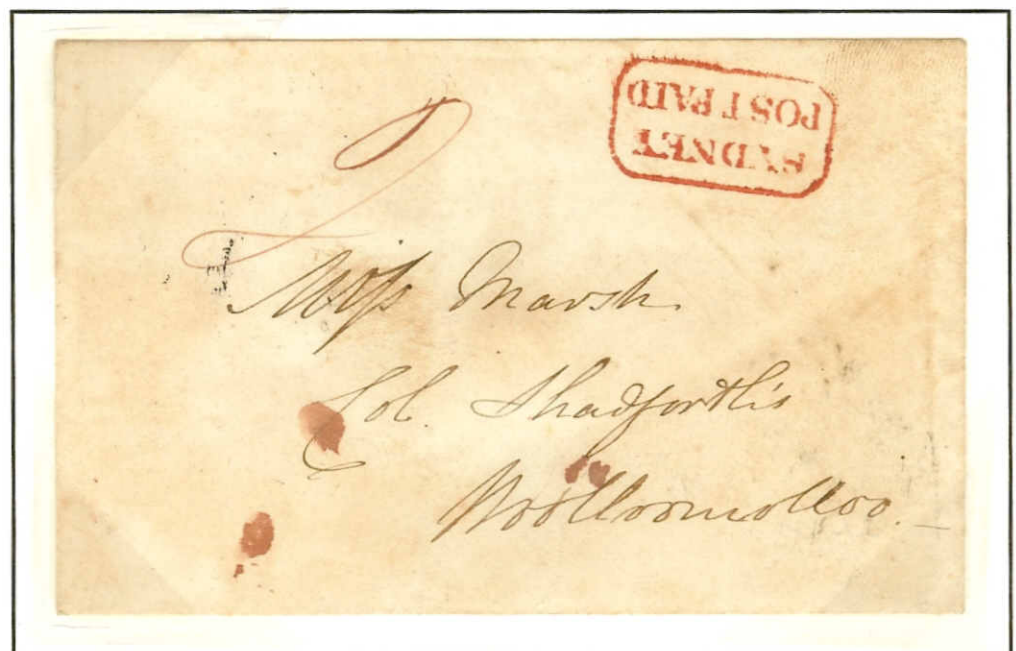 SYDNEY
POST PAID
2
Miss Marsh
Col. Shadforth's
Woolloomolloo.